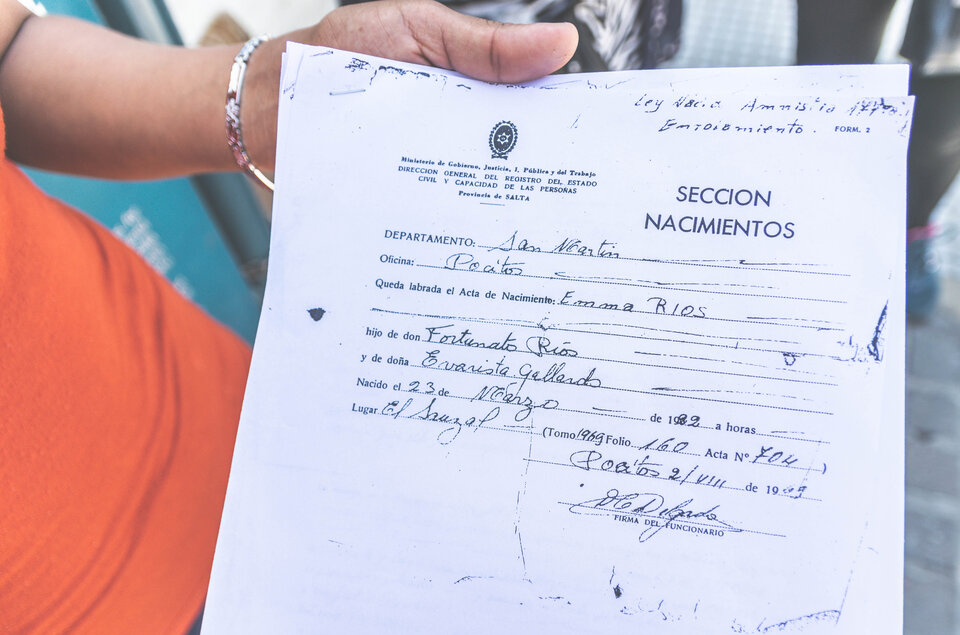 Ley Nacio Amnistia
Enrolamiento. FORM. 2
Ministerio de Gobierno, Justicia, I. Pública y del Trabajo
DIRECCION GENERAL DEL REGISTRO DEL ESTADO
CIVIL Y CAPACIDAD DE LAS PERSONAS
Provincia de SALTA
SECCION
NACIMIENTOS
DEPARTAMENTO: San Martin
Oficina: Pocitos
Queda labrada el Acta de Nacimiento: Emma RIOS
hijo de don Fortunato Ríos
y de doña Evarista Gallardo
Nacido el 23 de Marzo de 19 a horas
Lugar El Sauzal (Tomo 1969 Folio 160 Acta Nº 704)
Pocitos 2/VIII de 19
Delgado
FIRMA DEL FUNCIONARIO